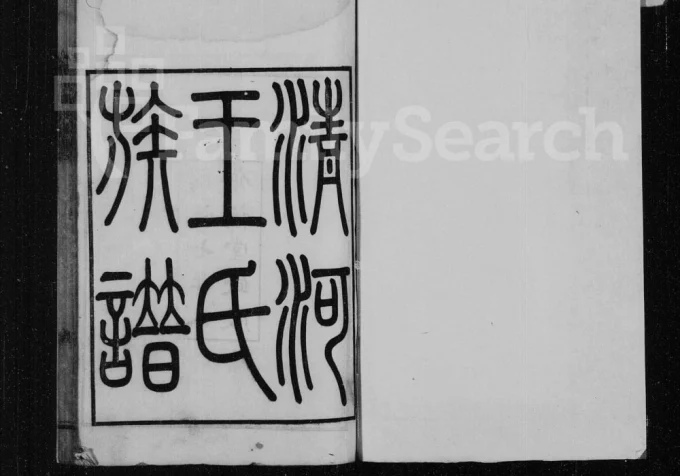 清河
王氏
族譜
FamilySearch